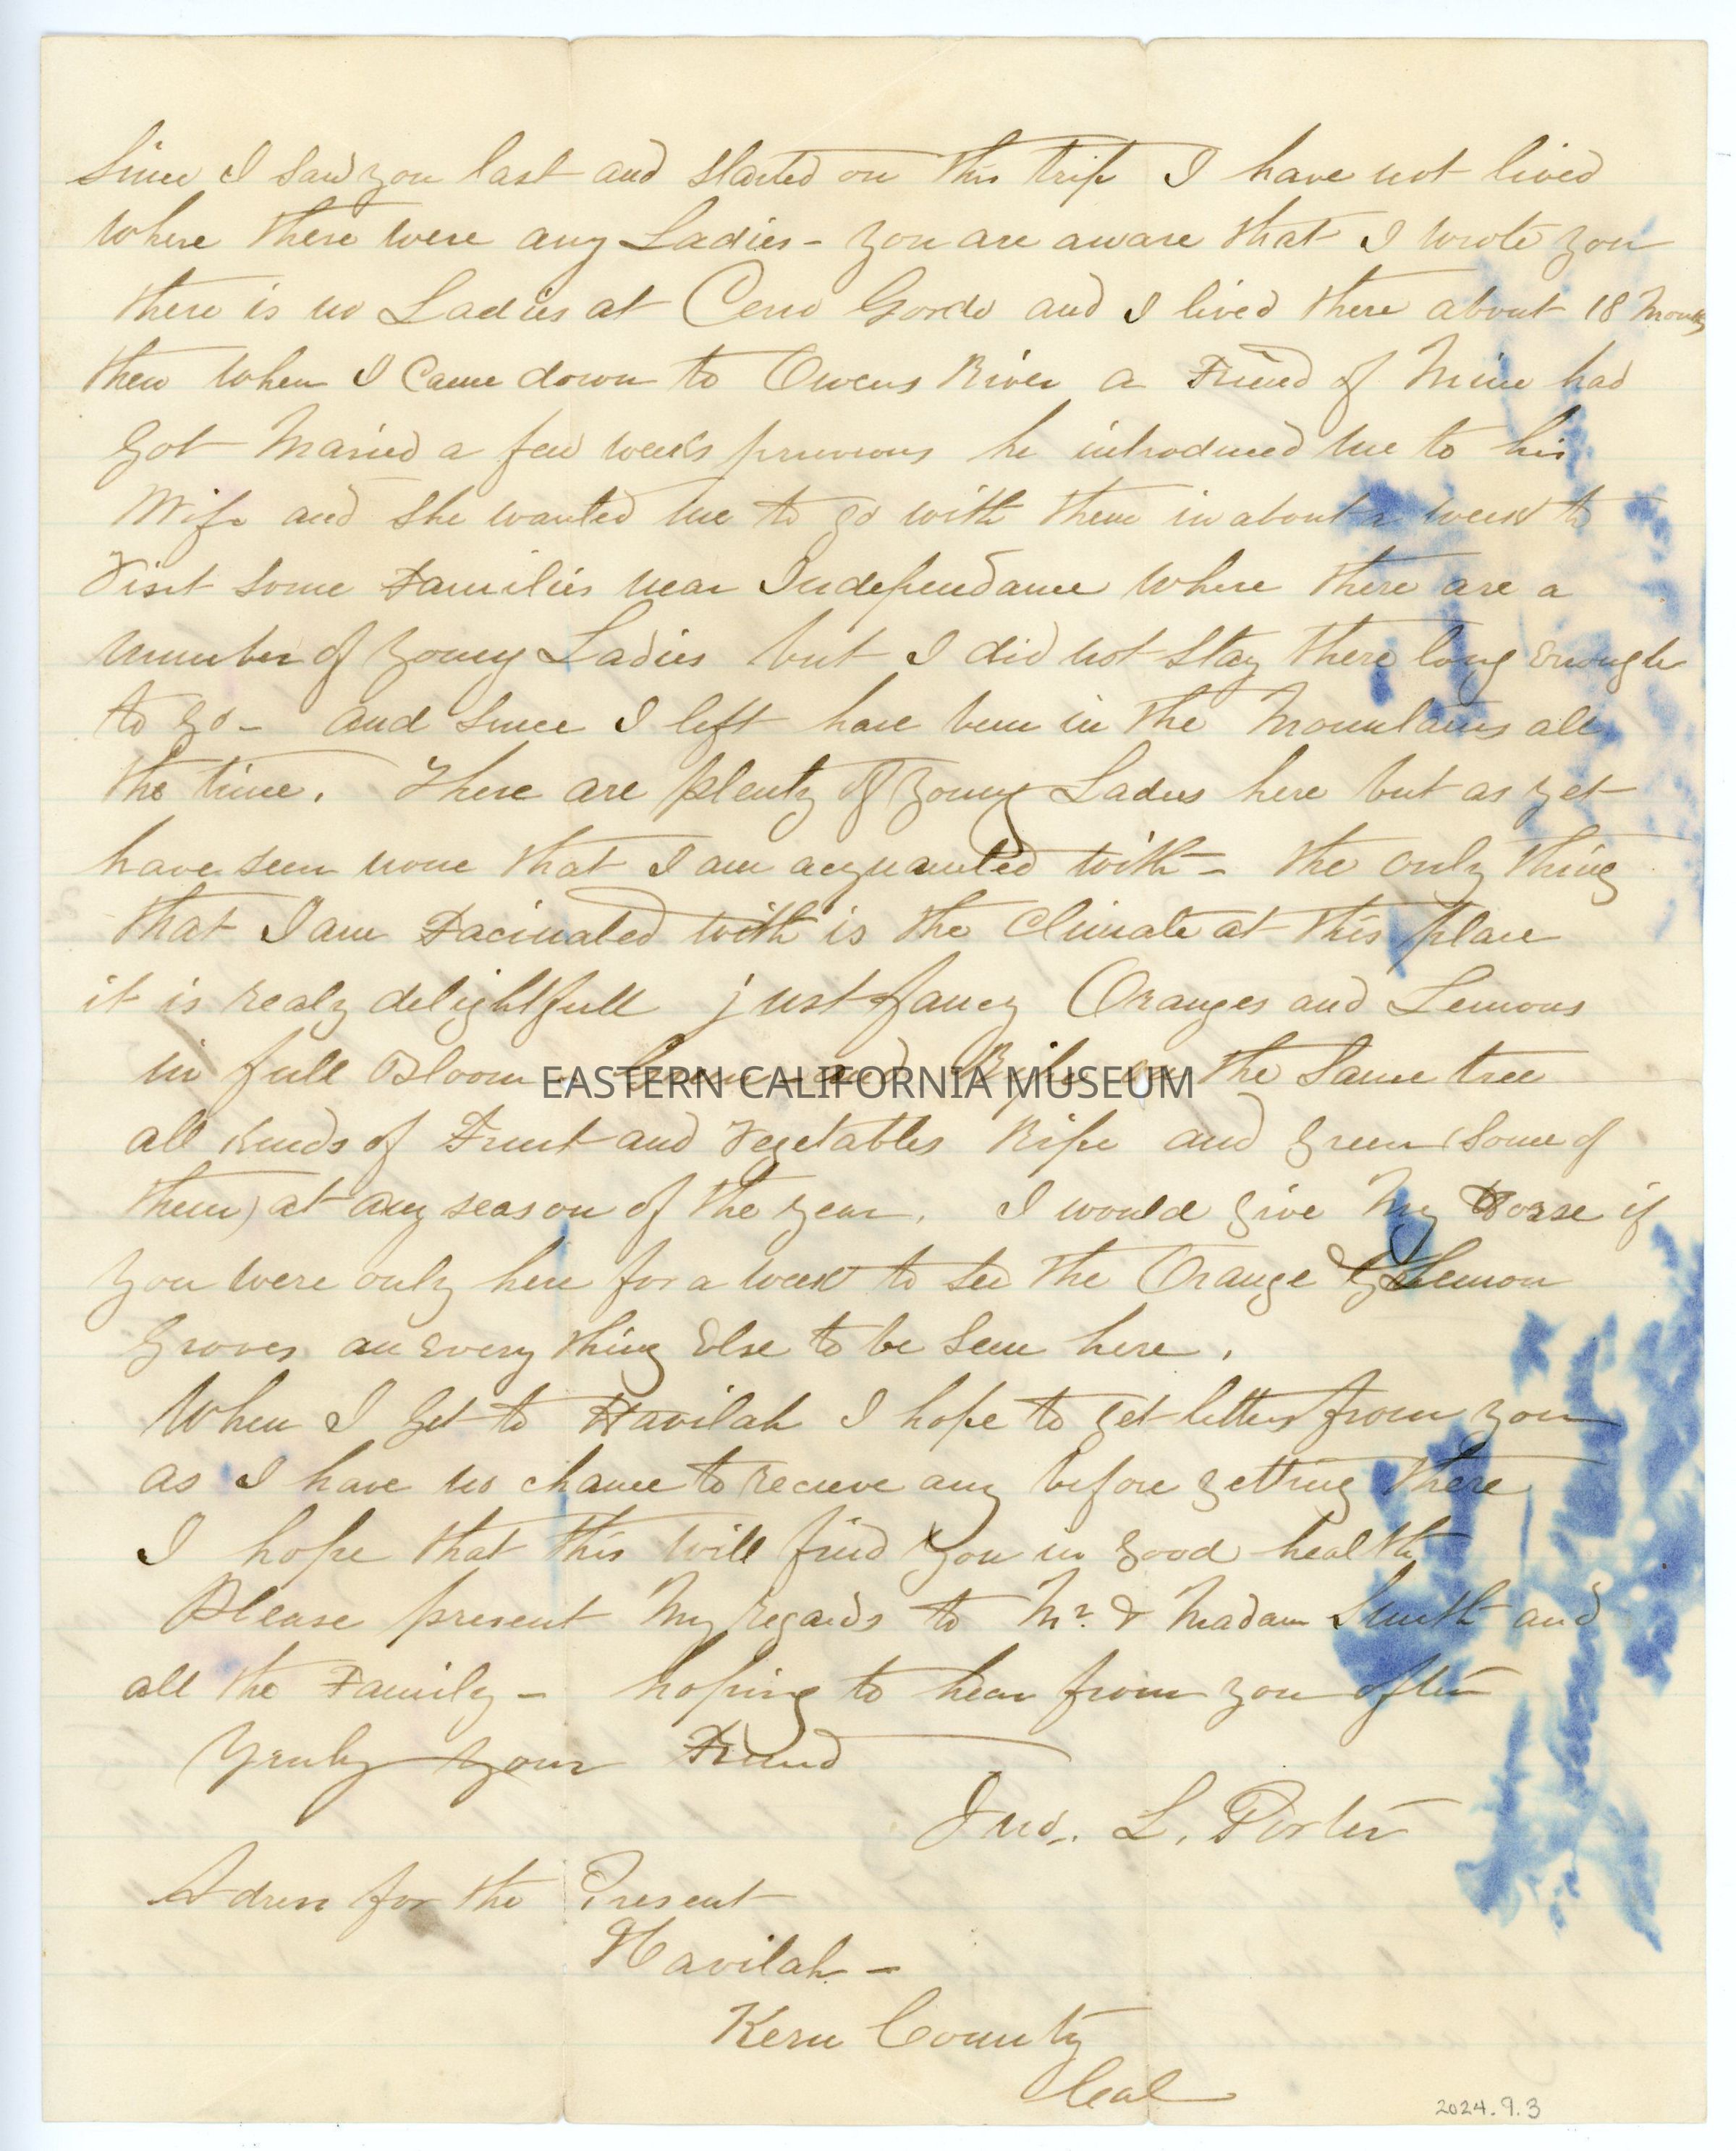 Since I Saw you last and started on this trip I have not lived
where there were any Ladies - you are aware that I wrote you
there is no Ladies at Cerro Gordo and I lived there about 18 Months
then when I Came down to Owens River a Friend of Mine had
Got Maried a few weeks previous he introduced me to his
Wife and She wanted me to go with them in about a week to
Visit Some Families near Independance where there are a
number of Young Ladies but I did not Stay there long Enough
to go - and Since I left have been in the Mountains all
the time. There are plenty of Young Ladies here but as yet
have seen none that I am acquanted with - the only thing
that I am Facinated with is the Climate at this place
it is realy delightfull just fancy Oranges and Lemons
in full Bloom - Green - and Ripe on the Same tree
EASTERN CALIFORNIA MUSEUM
all kinds of Fruit and Vegetables Ripe and green (Some of
them) at any season of the year. I would give My Horse if
you were only here for a week to see the Orange & Lemon
Groves an every thing Else to be Seen here.
When I Get to Havilah I hope to get letters from you
as I have no chance to recieve any before getting there
I hope that this will find you in good health
Please present My regards to Mr. & Madam Smith and
all the Family - hoping to hear from you often
Yruly your Friend
Jno. L. Porter
Adress for the Present
Havilah -
Kern County
Cal
2024.9.3